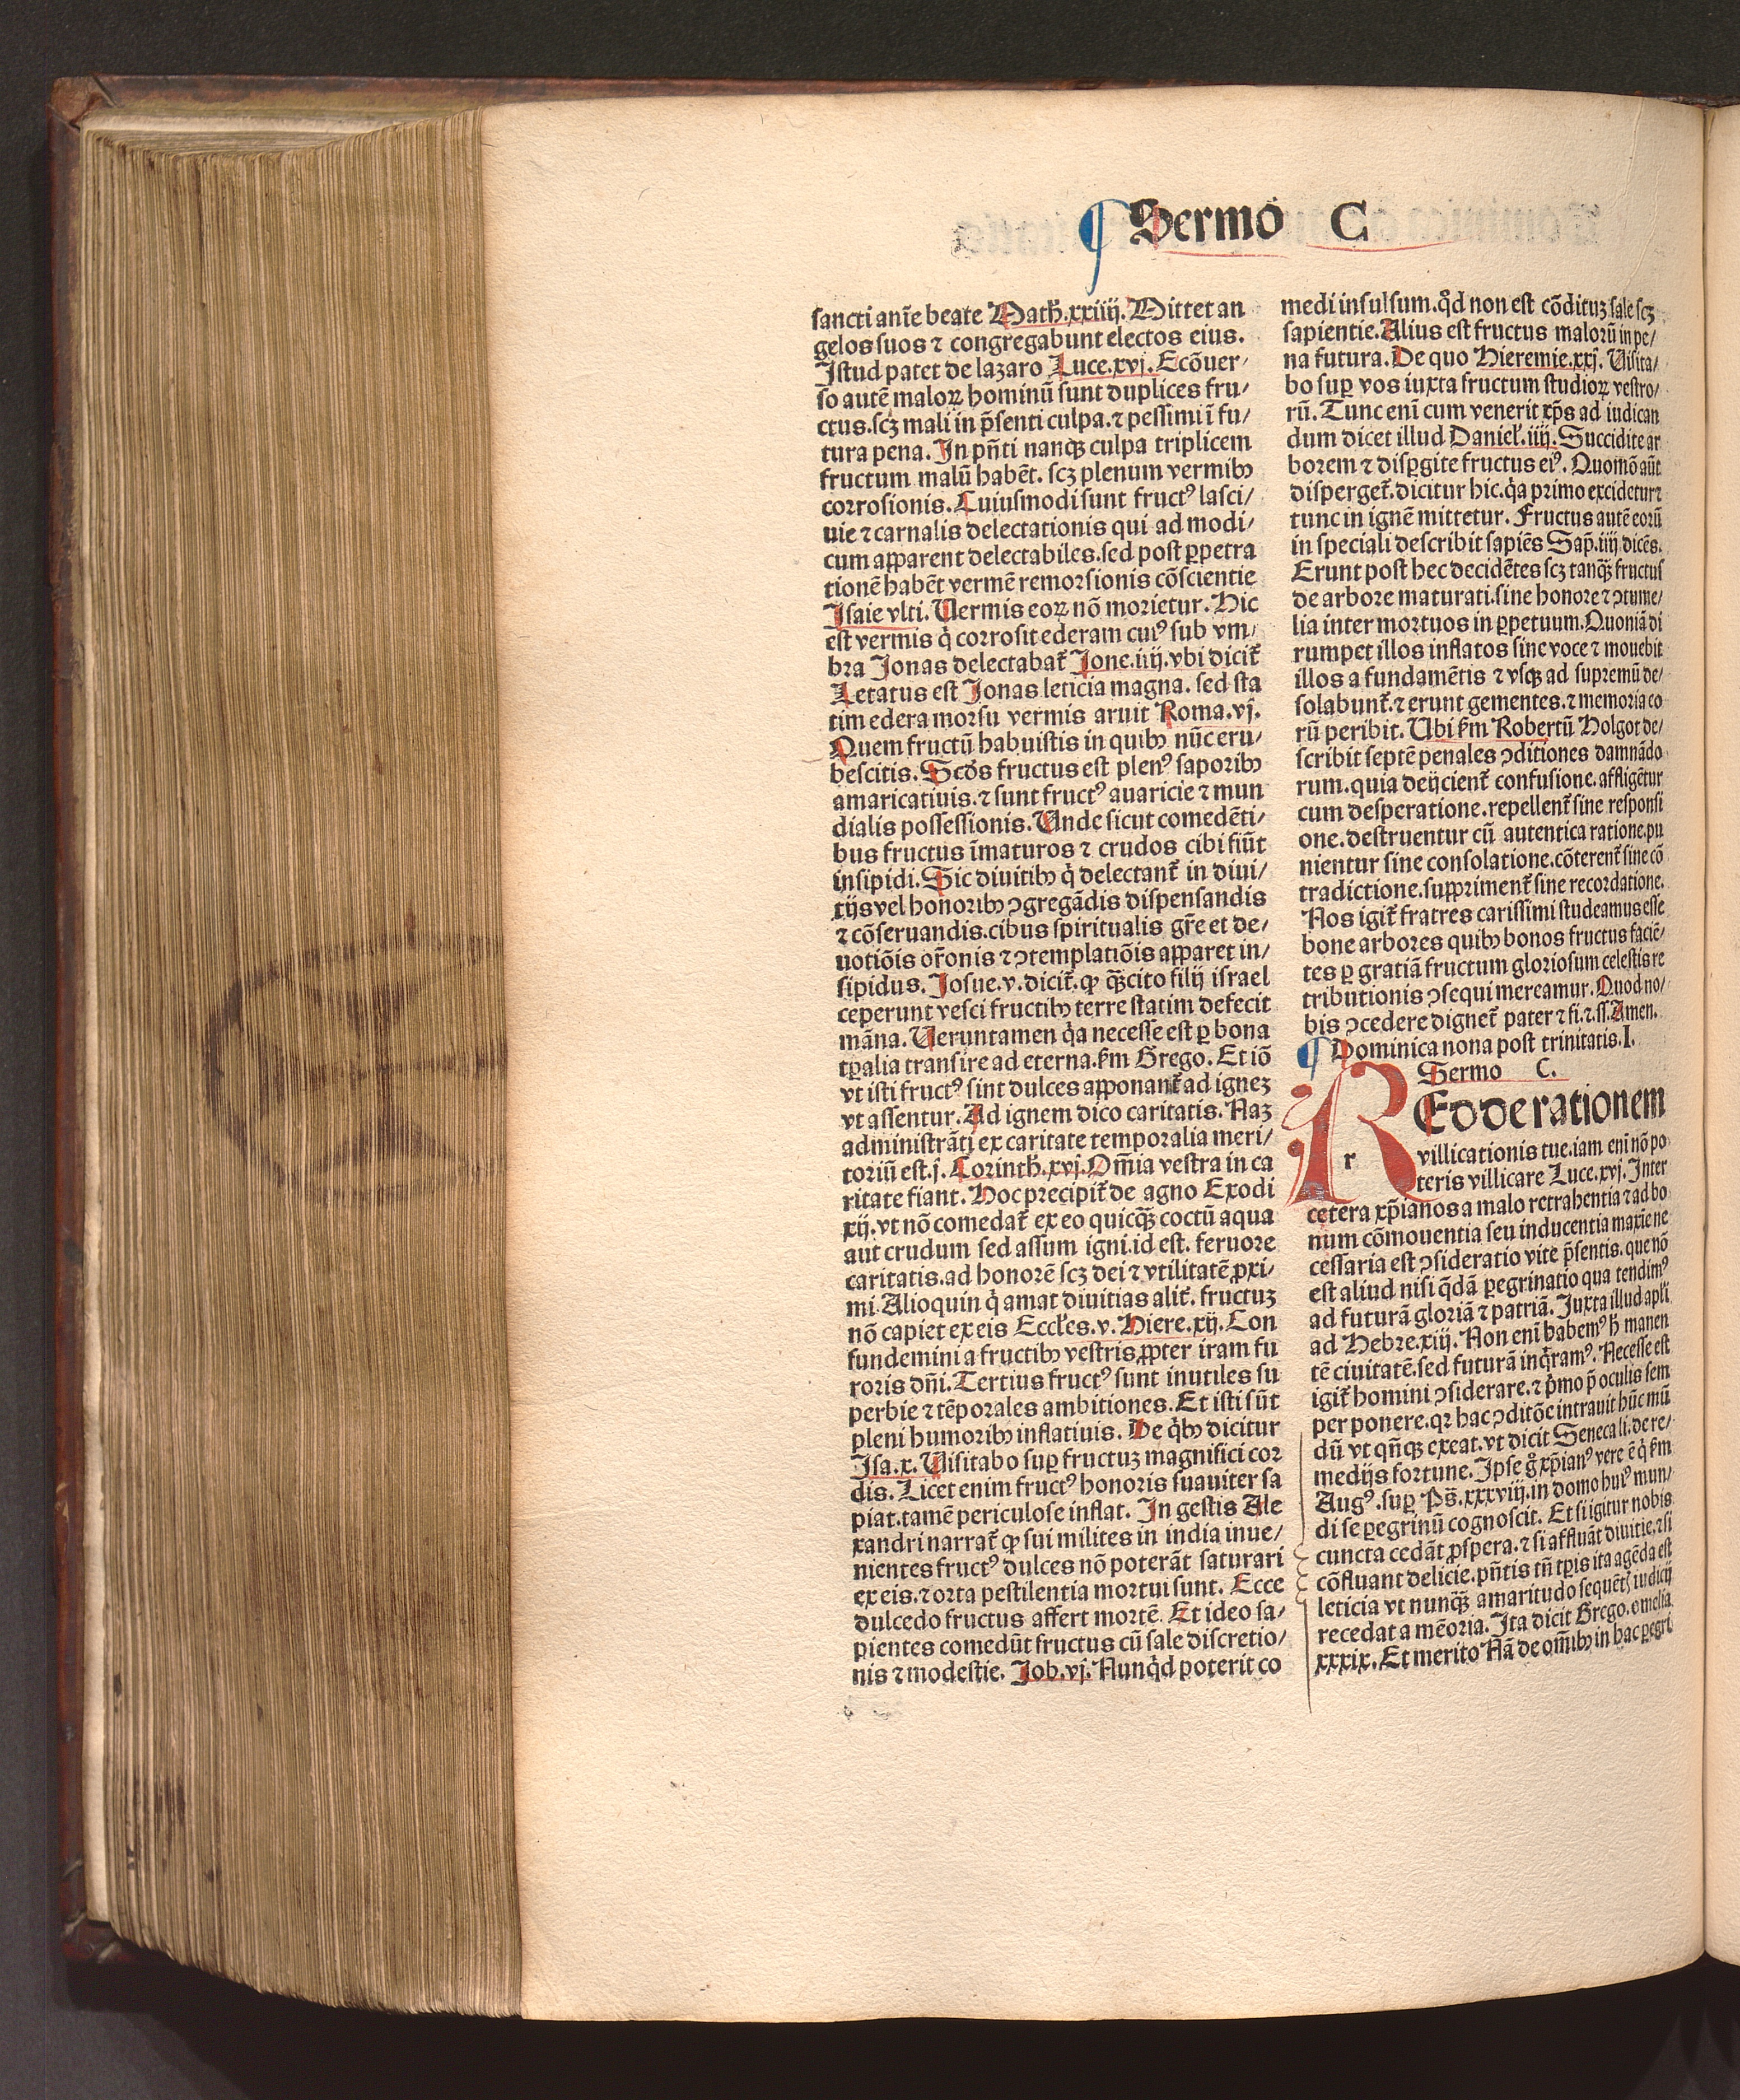 ¶ Sermo C
sancti anīe beate Math̄.xxiiij. Mittet an
gelos suos ⁊ congregabunt electos eius.
Istud patet de lazaro Luce.xvj. Ecōuer⸗
so autē maloꝝ hominū sunt duplices fru⸗
ctus.scꝫ mali in p̄senti culpa.⁊ pessimi ī fu⸗
tura pena. In pn̄ti nanqꝫ culpa triplicem
fructum malū habēt. scꝫ plenum vermibꝰ
corrosionis. Cuiusmodi sunt fructꝰ lasci⸗
uie ⁊ carnalis delectationis qui ad modi⸗
cum apparent delectabiles.sed post ꝑpetra
tionē habēt vermē remorsionis cōscientie
Isaie vlti. Uermis eoꝝ nō morietur. Hic
est vermis q̇ corrosit ederam cuiꝰ sub vm⸗
bra Jonas delectabat̄ Jone.iiij.vbi dicit̄
Letatus est Jonas leticia magna. sed sta
tim edera morsu vermis aruit Roma.vj.
Quem fructū habuistis in quibꝰ nūc eru⸗
bescitis. Scd̄s fructus est plenꝰ saporibꝰ
amaricatiuis.⁊ sunt fructꝰ auaricie ⁊ mun
dialis possessionis. Unde sicut comedēti⸗
bus fructus īmaturos ⁊ crudos cibi fiūt
insipidi. Sic diuitibꝰ q̇ delectant̄ in diui⸗
tijs vel honoribꝰ ꝯgregādis dispensandis
⁊ cōseruandis.cibus spiritualis gr̄e et de⸗
uotiōis or̄onis ⁊ ꝯtemplatiōis apparet in⸗
sipidus. Josue.v.dicit̄.ꝙ qꝫ̄cito filij israel
ceperunt vesci fructibꝰ terre statim defecit
māna. Ueruntamen q̇a necesse est ꝑ bona
tꝑalia transire ad eterna.ẜm Grego. Et iō
vt isti fructꝰ sint dulces apponant̄ ad ignez
vt assentur. Ad ignem dico caritatis. Naz
administrāti ex caritate temporalia meri⸗
toriū est.j. Corinth̄.xvj. Om̄ia vestra in ca
ritate fiant. Hoc precipit̄ de agno Exodi
xij. vt nō comedat̄ ex eo quicqꝫ̄ coctū aqua
aut crudum sed assum igni.id est. feruore
caritatis.ad honorē scꝫ dei ⁊ vtilitatē ꝓxi⸗
mi. Alioquin q̇ amat diuitias alit̄. fructuz
nō capiet ex eis Eccl̄es.v. Hiere.xij. Con
fundemini a fructibꝰ vestris ꝓpter iram fu
roris dn̄i. Tertius fructꝰ sunt inutiles su
perbie ⁊ tēporales ambitiones. Et isti sūt
pleni humoribꝰ inflatiuis. De q̇bꝰ dicitur
Isa.x. Uisitabo suꝑ fructuz magnifici cor
dis. Licet enim fructꝰ honoris suauiter sa
piat.tamē periculose inflat. In gestis Ale
xandri narrat̄ ꝙ sui milites in india inue⸗
nientes fructꝰ dulces nō poterāt saturari
ex eis.⁊ orta pestilentia mortui sunt. Ecce
dulcedo fructus affert mortē. Et ideo sa⸗
pientes comedūt fructus cū sale discretio⸗
nis ⁊ modestie. Job.vj. Nunq̇d poterit co
medi insulsum.qd̄ non est cōdituꝫ sale scꝫ
sapientie. Alius est fructus malorū in pe⸗
na futura. De quo Hieremie.xxj. Uisita⸗
bo suꝑ vos iuxta fructum studioꝝ vestro⸗
rū. Tunc enī cum venerit xp̄s ad iudican
dum dicet illud Daniel̄.iiij. Succidite ar
borem ⁊ disꝑgite fructus eiꝰ. Quomō aūt
disperget̄.dicitur hic.q̇a primo excidetur ⁊
tunc in ignē mittetur. Fructus autē eorū
in speciali describit sapiēs Sap̄.iiij dicēs.
Erunt post hec decidētes scꝫ tanqꝫ̄ fructus
de arbore maturati.sine honore ⁊ ꝯtume⸗
lia inter mortuos in ꝑpetuum. Quoniā di
rumpet illos inflatos sine voce ⁊ mouebit
illos a fundamētis ⁊ vsqꝫ ad supremū de⸗
solabunt̄.⁊ erunt gementes.⁊ memoria eo
rū peribit. Ubi ẜm Robertū Holgot de⸗
scribit septē penales ꝯditiones damnādo
rum.quia deijcient̄ confusione.affligētur
cum desperatione.repellent̄ sine responsi
one.destruentur cū autentica ratione.pu
nientur sine consolatione.cōterent̄ sine cō
tradictione.suppriment̄ sine recordatione.
Nos igit̄ fratres carissimi studeamus esse
bone arbores quibꝰ bonos fructus faciē⸗
tes ꝑ gratiā fructum gloriosum celestis re
tributionis ꝯsequi mereamur. Quod no⸗
bis ꝯcedere dignet̄ pater ⁊ fi.⁊.ss. Amen.
¶ Dominica nona post trinitatis.I.
Sermo C.
REdde rationem
r villicationis tue.iam enī nō po
teris villicare Luce.xvj. Inter
cetera xp̄ianos a malo retrahentia ⁊ ad bo
num cōmouentia seu inducentia maxīe ne
cessaria est ꝯsideratio vite p̄sentis. que nō
est aliud nisi q̄dā ꝑegrinatio qua tendimꝰ
ad futurā gloriā ⁊ patriā. Juxta illud apl̄i
ad Hebre.xiij. Non enī habemꝰ h̄ manen
tē ciuitatē.sed futurā inq̇ramꝰ. Necesse est
igit̄ homini ꝯsiderare.⁊ ṗmo p̄ oculis sem
per ponere.qꝛ hac ꝯditōe intrauit hūc mū
dū vt qn̄qꝫ exeat.vt dicit Seneca li.de re⸗
medijs fortune. Ipse g̊ xp̄ianꝰ vere ē q̇ ẜm
Augꝰ.suꝑ Ps̄.xxxviij.in domo huiꝰ mun⸗
di se ꝑegrinū cognoscit. Et si igitur nobis
cuncta cedāt ꝓspera.⁊ si affluāt diuitie.⁊ si
cōfluant delicie.pn̄tis tn̄ tꝑis ita agēda est
leticia vt nunqꝫ̄ amaritudo sequētꝭ iudicij
recedat a mēoria. Ita dicit Grego.omelia
xxxix. Et merito Nā de om̄ibꝰ in hac ꝑegri